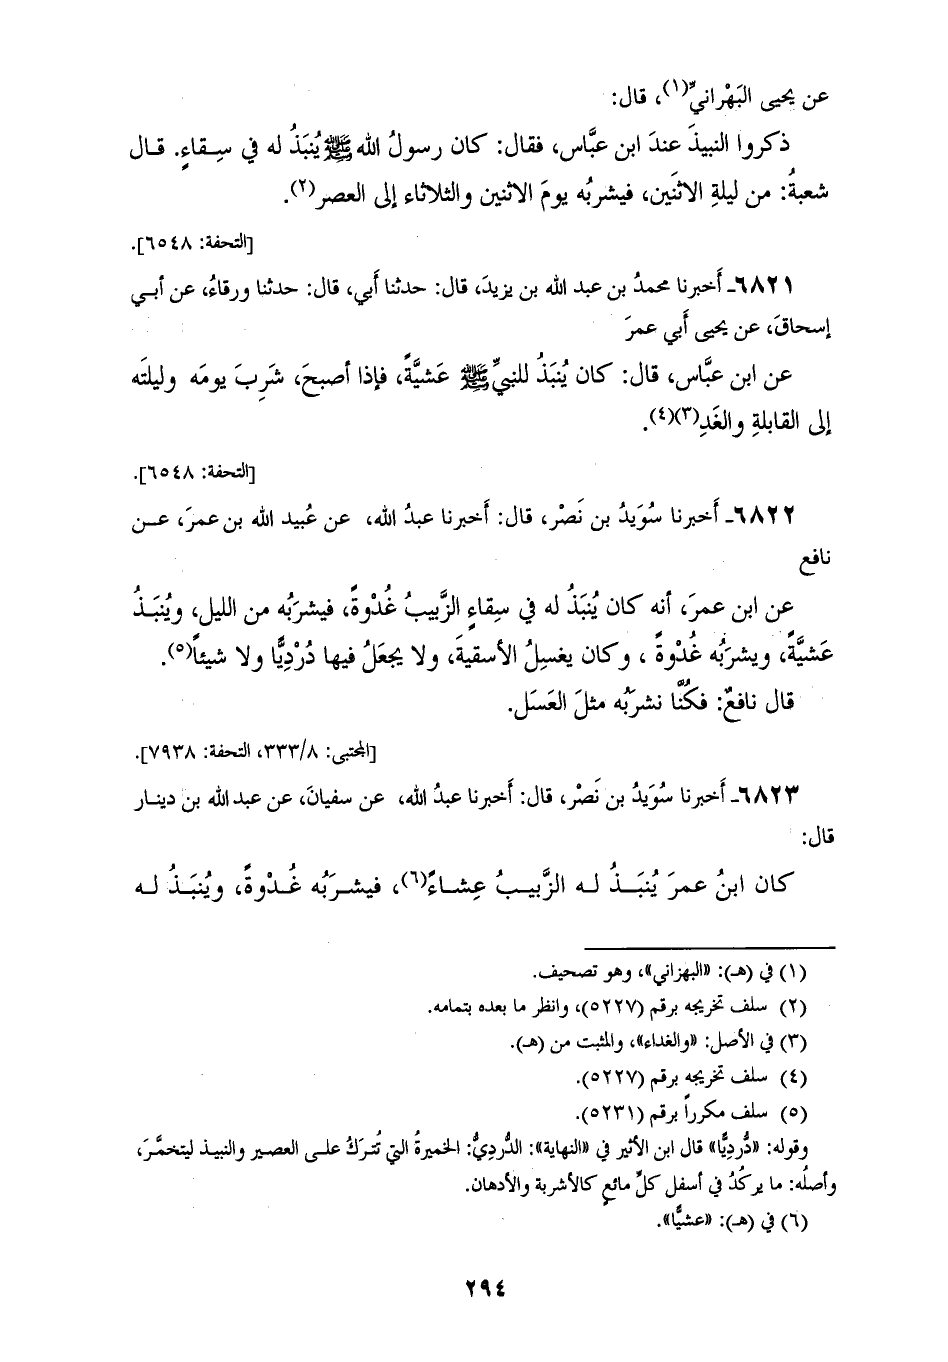 عن يحيى البَهْرانيِّ(١)، قال:
ذكروا النبيذَ عندَ ابن عبَّاس، فقال: كان رسولُ الله ﷺ يُنبَذُ له في سِقاءٍ. قال
شعبةُ: من ليلةِ الاثنَين، فيشربُه يومَ الاثنين والثلاثاء إلى العصر(٢).
[التحفة: ٦٥٤٨].
٦٨٢١ـ أَخبرنا محمدُ بن عبد الله بن يزيدَ، قال: حدثنا أَبي، قال: حدثنا ورقاءُ، عن أبي
إسحاقَ، عن يحيى أَبي عمرَ
عن ابن عبَّاس، قال: كان يُنبَذُ للنبيِّ ﷺ عَشيَّةً، فإذا أصبحَ، شَرِبَ يومَه وليلتَه
إلى القابلةِ والغَدِ(٣)(٤).
[التحفة: ٦٥٤٨].
٦٨٢٢ـ أَخبرنا سُوَيدُ بن نَصْر، قال: أَخبرنا عبدُ الله، عن عُبيد الله بن عمرَ، عن
نافع
عن ابن عمرَ، أنه كان يُنبَذُ له في سِقاءٍ الزَّبيبُ غُدْوةً، فيشرَبُه من الليل، ويُنبَذُ
عَشيَّةً، ويشرَبُه غُدْوةً ، وكان يغسِلُ الأسقيةَ، ولا يجعَلُ فيها دُرْدِيًّا ولا شيئاً(٥).
قال نافعٌ: فكُنَّا نشرَبُه مثلَ العَسَل.
[المجتبى: ٣٣٣/٨، التحفة: ٧٩٣٨].
٦٨٢٣ـ أَخبرنا سُوَيدُ بن نَصْر، قال: أَخبرنا عبدُ الله، عن سفيانَ، عن عبد الله بن دينار
قال:
كان ابنُ عمرَ يُنبَذُ له الزَّبيبُ عِشاءً(٦)، فيشرَبُه غُدْوةً، ويُنبَذُ له
(١) في (هـ): «البهزاني»، وهو تصحيف.
(٢) سلف تخريجه برقم (٥٢٢٧)، وانظر ما بعده بتمامه.
(٣) في الأصل: «والغداء»، والمثبت من (هـ).
(٤) سلف تخريجه برقم (٥٢٢٧).
(٥) سلف مكرراً برقم (٥٢٣١).
وقوله: «دُّردِيًّا» قال ابن الأثير في «النهاية»: الدُّرديُّ: الخميرةُ التي تُترَكُ على العصير والنبيذ ليتخمَّرَ،
وأصلُه: ما يركُدُ في أسفل كلِّ مائعٍ كالأشربة والأدهان.
(٦) في (هـ): «عشيًّا».
٢٩٤